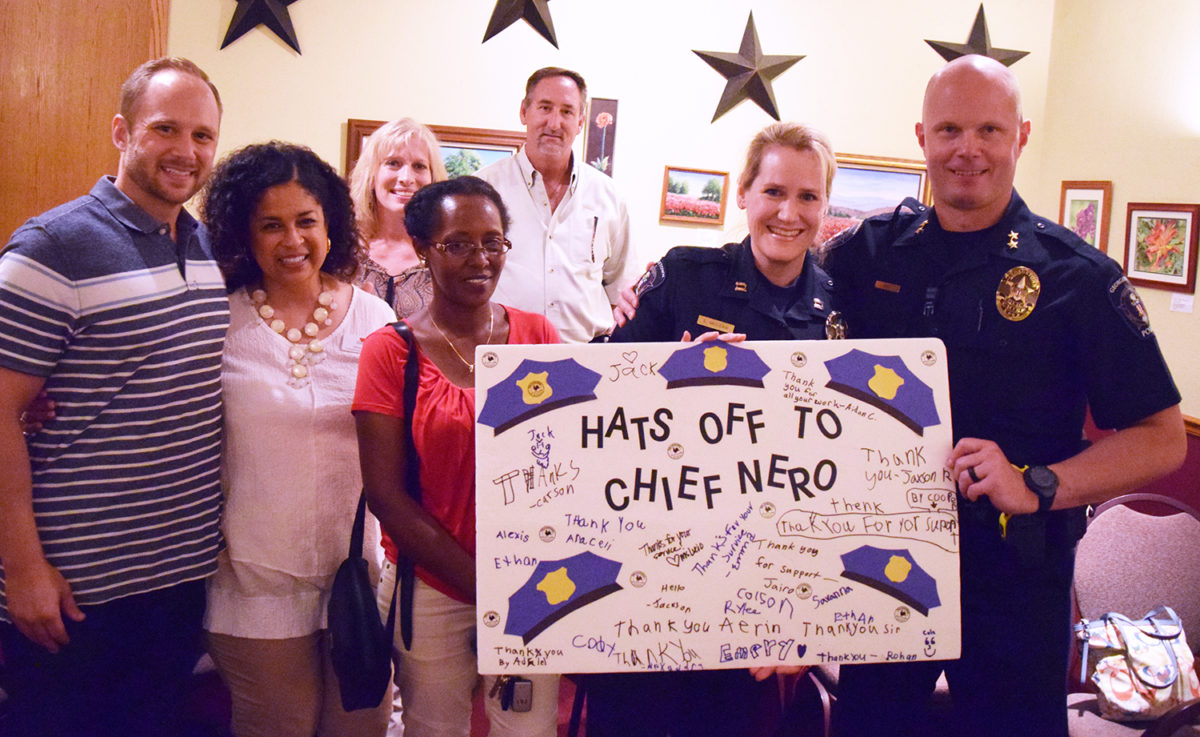 Jack
Thank
you for
all your work-Aidan C.
HATS OFF TO
CHIEF NERO
Jack
THANKS
-carson
Thank
you-Jaxson R
BY COOPER
thenk
Thankyou For yor suport
Alexis
Thank you
Araceli
Ethan
Thanks for your
service
Thank's For Your
Survice
-Emma
Thank you
for support-
Jairo
Hello
-Jackson
Colson
Rylee
Savanna
Ethan
Thank you Aerin
Thank you sir
Cole
Coby
THANK YOU
Emery
Thank you
By Adriel
Thank you- Rohan